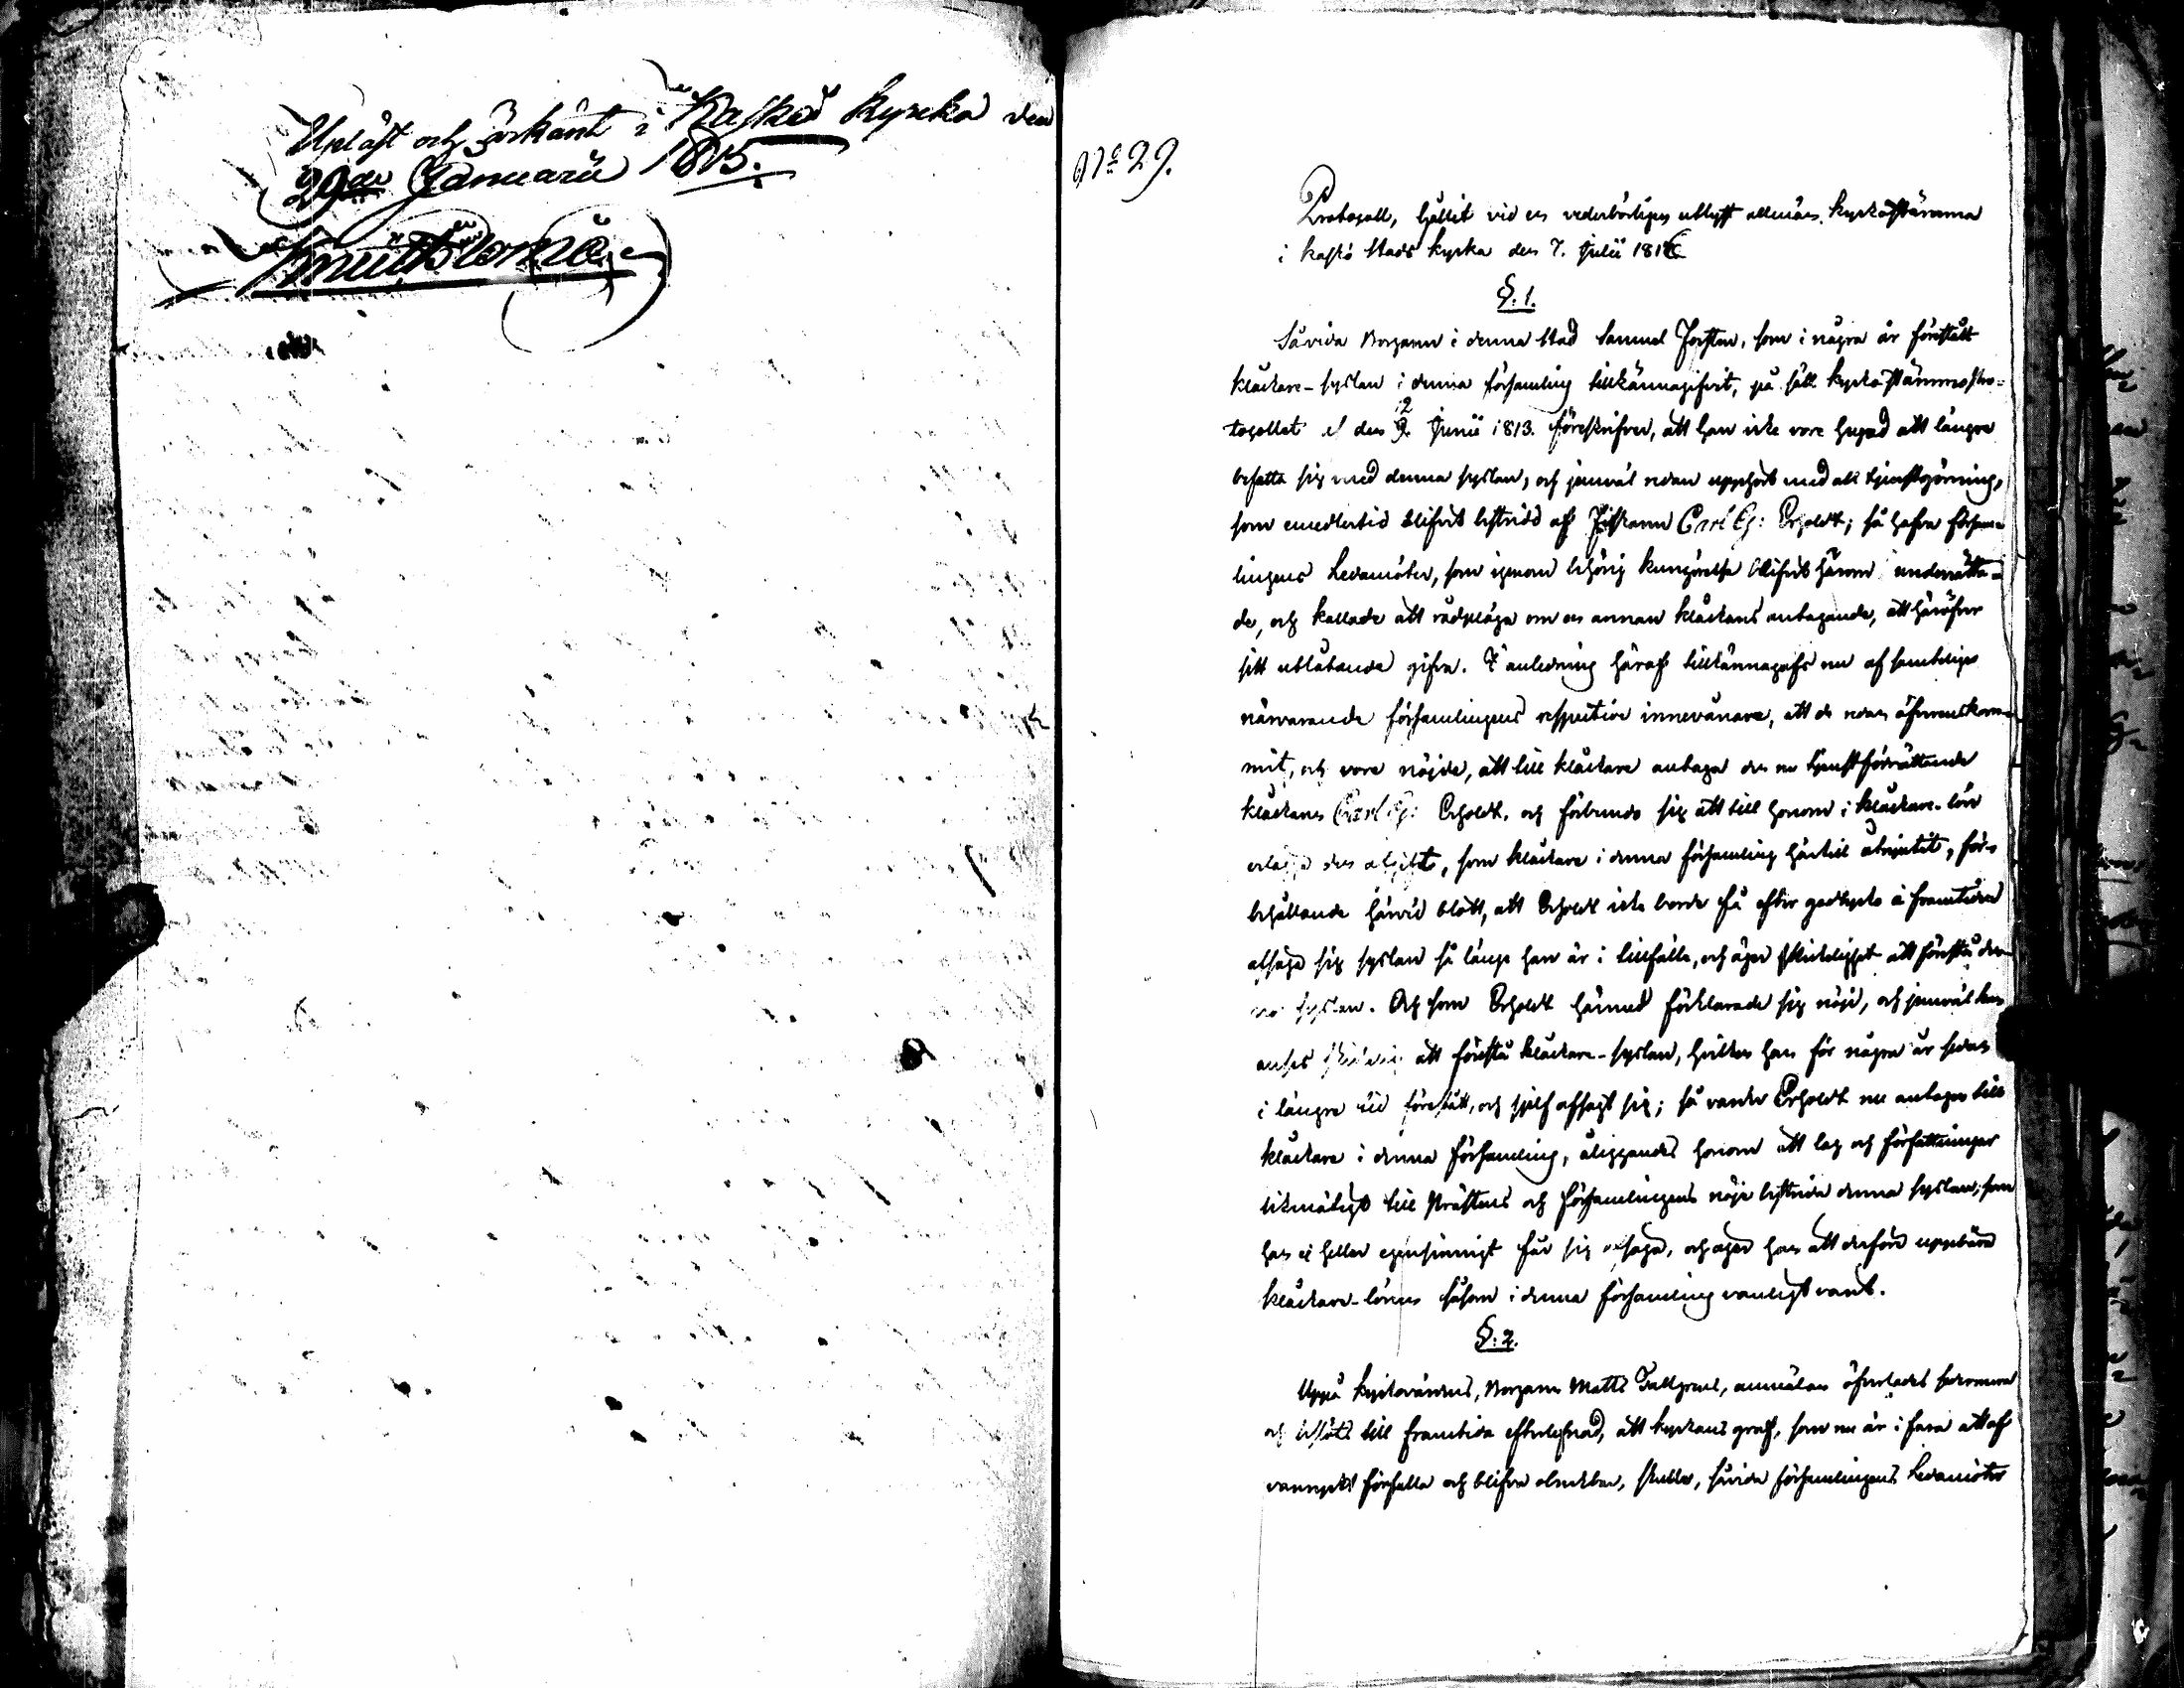 Upläst och ärkänt i Kaskö Kyrcka den
29de Januarii 1815.
N:o 29.
Protocoll, hållit vid en vederbörligen utlyst allmän kyrkostämma
i Kaskö Stads kyrka den 7. Julii 181
§. 1.
Såvida Borgaren i denna Stad Samuel Forsten, som i några år förestått
klåckare-syslan i denna församling tillkännagifvit, på sätt kyrkostämmopro-
tocollet af den 12 Junii 1813. föreskrifver, att han icke vore hugad att längre
befatta sig med denna syslan, och jemväl redan upphört med all tjenstgöring,
som emedlertid blifvit bestridd af Fiskaren Carl Gj: Erholdt; så hafva försam-
lingens Ledamöter, som igenom behörig kungörelse blifvit härom underrätta-
de, och kallade att rådpläga om en annan klåckares antagande, att häröfver
sitt utlåtande gifva. I anledning häraf tillkännagafs nu af samtelige
närvarande församlingens respective innevånare, att de redan öfverenskom-
mit, och vore nöjde, att till klåckare antaga den nu tjenstförrättande
klåckaren Carl Gj: Erholdt, och förbundo sig att till honom i klåckare-lön
erlägga den afgift, som klåckare i denna församling härtill åtnjutit, för-
behållande härvid blott, att Erholdt icke borde få efter godtycke i framtiden
afsäga sig syslan så länge han är i tillfälle, och äger skickelighet att förestå den-
na syslan. Och som Erholdt härmed förklarade sig nöjd, och jemväl kan
anses skickelig att förestå klåckare-syslan, hvilken han för några år sedan
i längre tid förestått, och sjelf afsagt sig; så vardt Erholdt nu antagen till
klåckare i denna församling, åliggandes honom att lag och författningar
likmätigt till Prästens och församlingens nöje bestrida denna syslan, som
han ej heller egensinnigt får sig afsäga, och äger han att derföre uppbära
klåckare-lönen såsom i denna församling vanligt varit.
§. 2.
Uppå kyrkovärdens, Borgaren Matts Tallgrens, anmälan öfverlades
och beslöts till framtida efterlefnad, att kyrkans graf, som nu är i fara att af
vanvård förfalla och blifva obrukbar, skulle, såvida församlingens Ledamöter